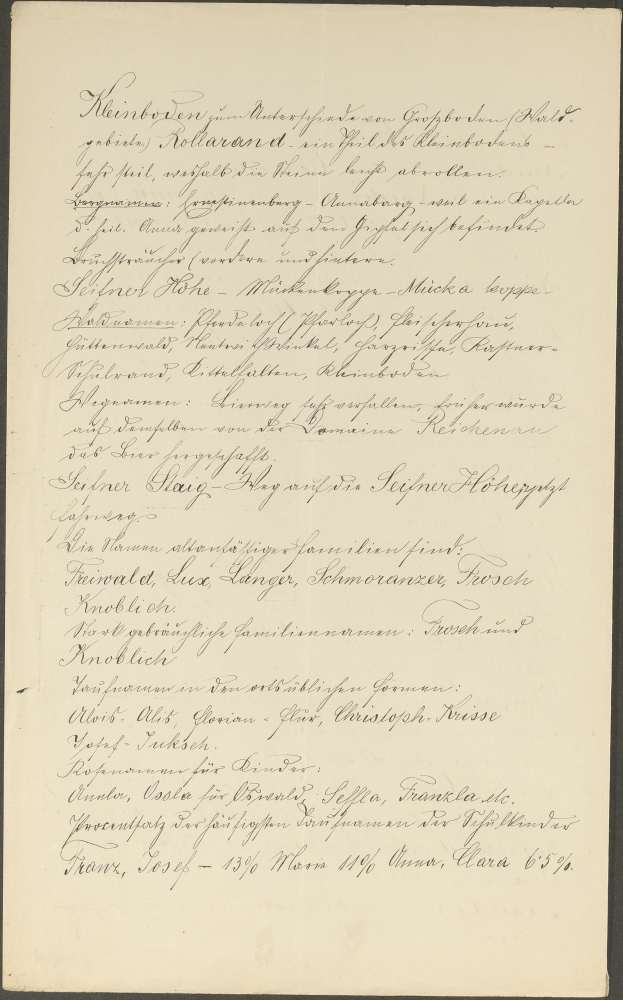 Kleinboden zum Unterschiede von Groszboden (Wald-
gebiete) Rollarand - ein Theil des Kleinbodens -
sehr steil, weshalb die Steine leicht abrollen.
Bergnamen: Ernestinenberg - Annabarg - weil eine Kapelle
d. heil. Anna geweiht auf dem Gipfel sich befindet.
Bruchsträucher (vordere und hintere.
Seifner Höhe - Mückenkoppe - Mücka koppe -
Waldnamen: Pferdeloch (Pfarloch), Fleischerhau,
Hüttenwald, Harzriesse, Kastner-
Schulrand, Kittelfalten, Kleinboden
Wegnamen: Bierweg sehr verfallen, früher wurde
auf demselben von der Domaine Reichenau
das Bier hergeschafft.
Seifner Staig - Weg auf die Seifner Höhe, jetzt
Fahrweg.
Die Namen altansäßiger Familien sind:
Freiwald, Lux, Langer, Schmoranzer, Frosch
Knoblich.
Stark gebräuchliche Familiennamen: Frosch und
Knoblich
Taufnamen in den ortsüblichen Formen:
Alois - Alis, Florian - Flur, Christoph - Krisse
Josef - Juksch.
Kosenamen für Kinder:
Annla, Ossla für Oswald, Seffla, Franzla etc.
Procentsatz der häufigsten Taufnamen der Schulkinder
Franz, Josef - 13% Marie 11% Anna, Clara 6·5%.